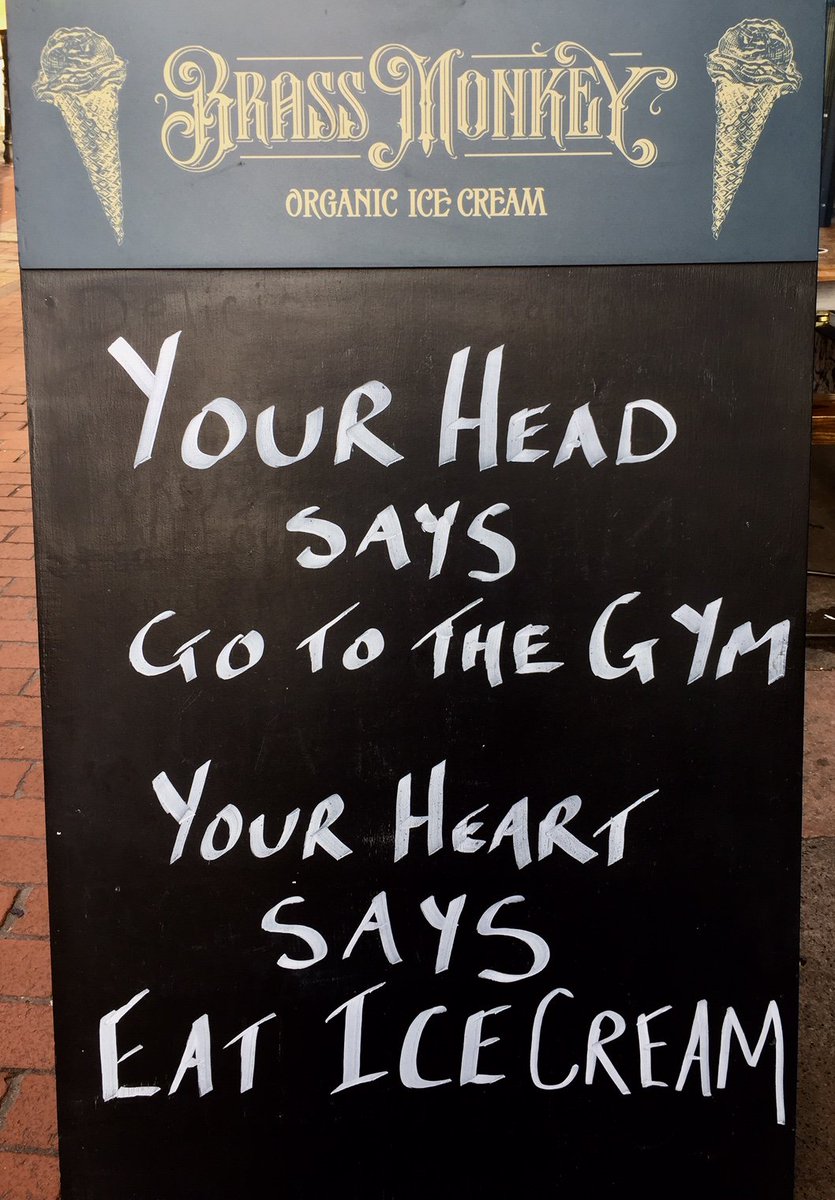 BRASS MONKEY
ORGANIC ICE CREAM
YOUR HEAD
SAYS
GO TO THE GYM
YOUR HEART
SAYS
EAT ICE CREAM